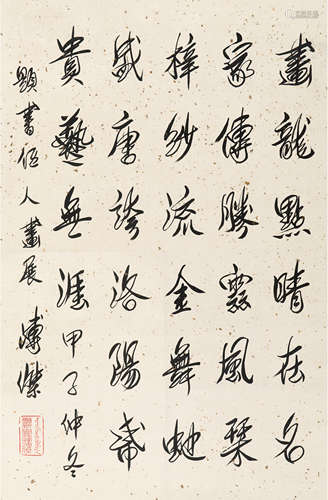 畫龍點睛在名
家傳勝風琹
梓流金舞虵
盛唐誇洛陽帋
貴藝無涯甲子仲冬
題書伍人畫展 溥傑